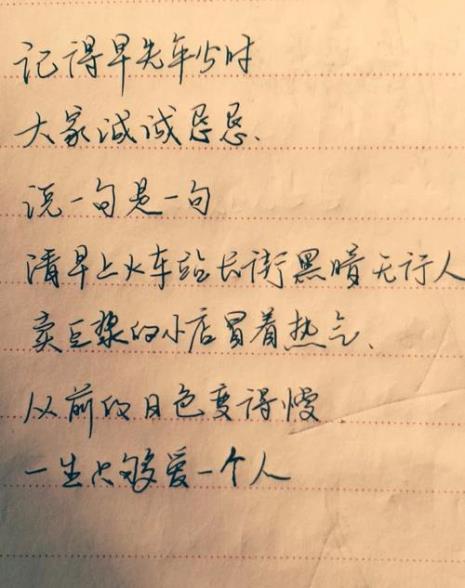 记得早先年少时
大家诚诚恳恳、
说一句是一句
清早上火车站长街黑暗无行人
卖豆浆的小店冒着热气、
从前的日色变得慢
一生只够爱一个人